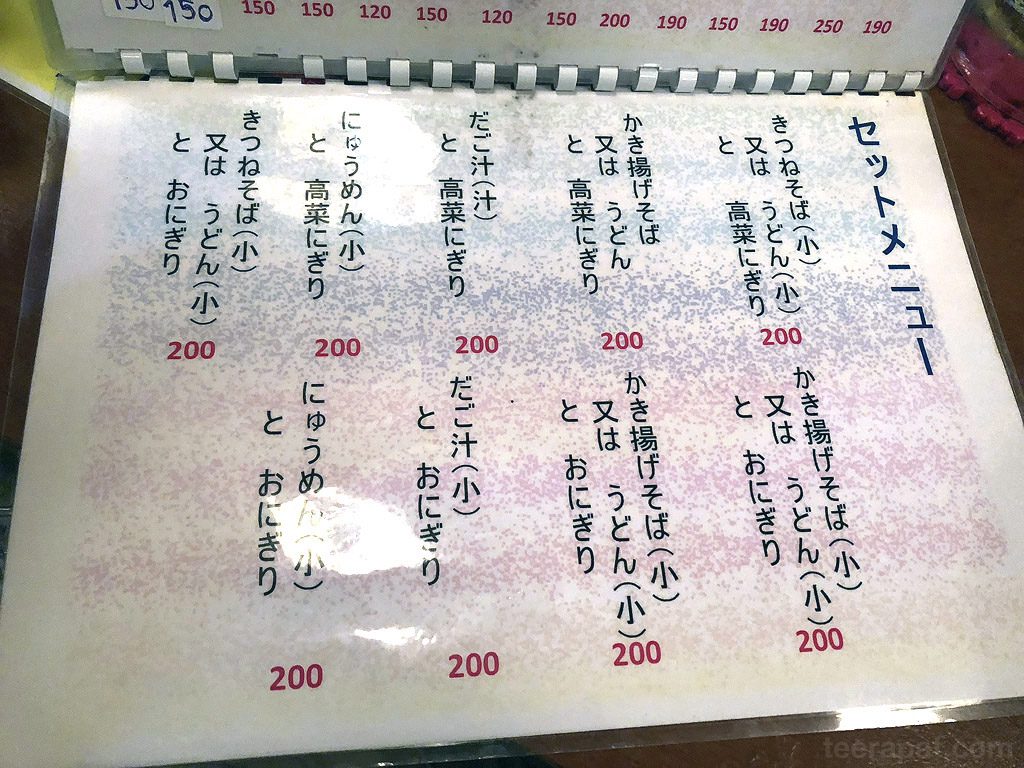 150 150 150 120 150 120 150 200 190 150 190 250 190
セットメニュー
きつねそば(小)
又は うどん(小)
と 高菜にぎり
200
かき揚げそば
又は うどん
と 高菜にぎり
200
だご汁(汁)
と 高菜にぎり
200
にゅうめん(小)
と 高菜にぎり
200
きつねそば(小)
又は うどん(小)
と おにぎり
200
かき揚げそば(小)
又は うどん(小)
と おにぎり
200
かき揚げそば(小)
又は うどん(小)
と おにぎり
200
だご汁(小)
と おにぎり
200
にゅうめん(小)
と おにぎり
200
teerapat.com